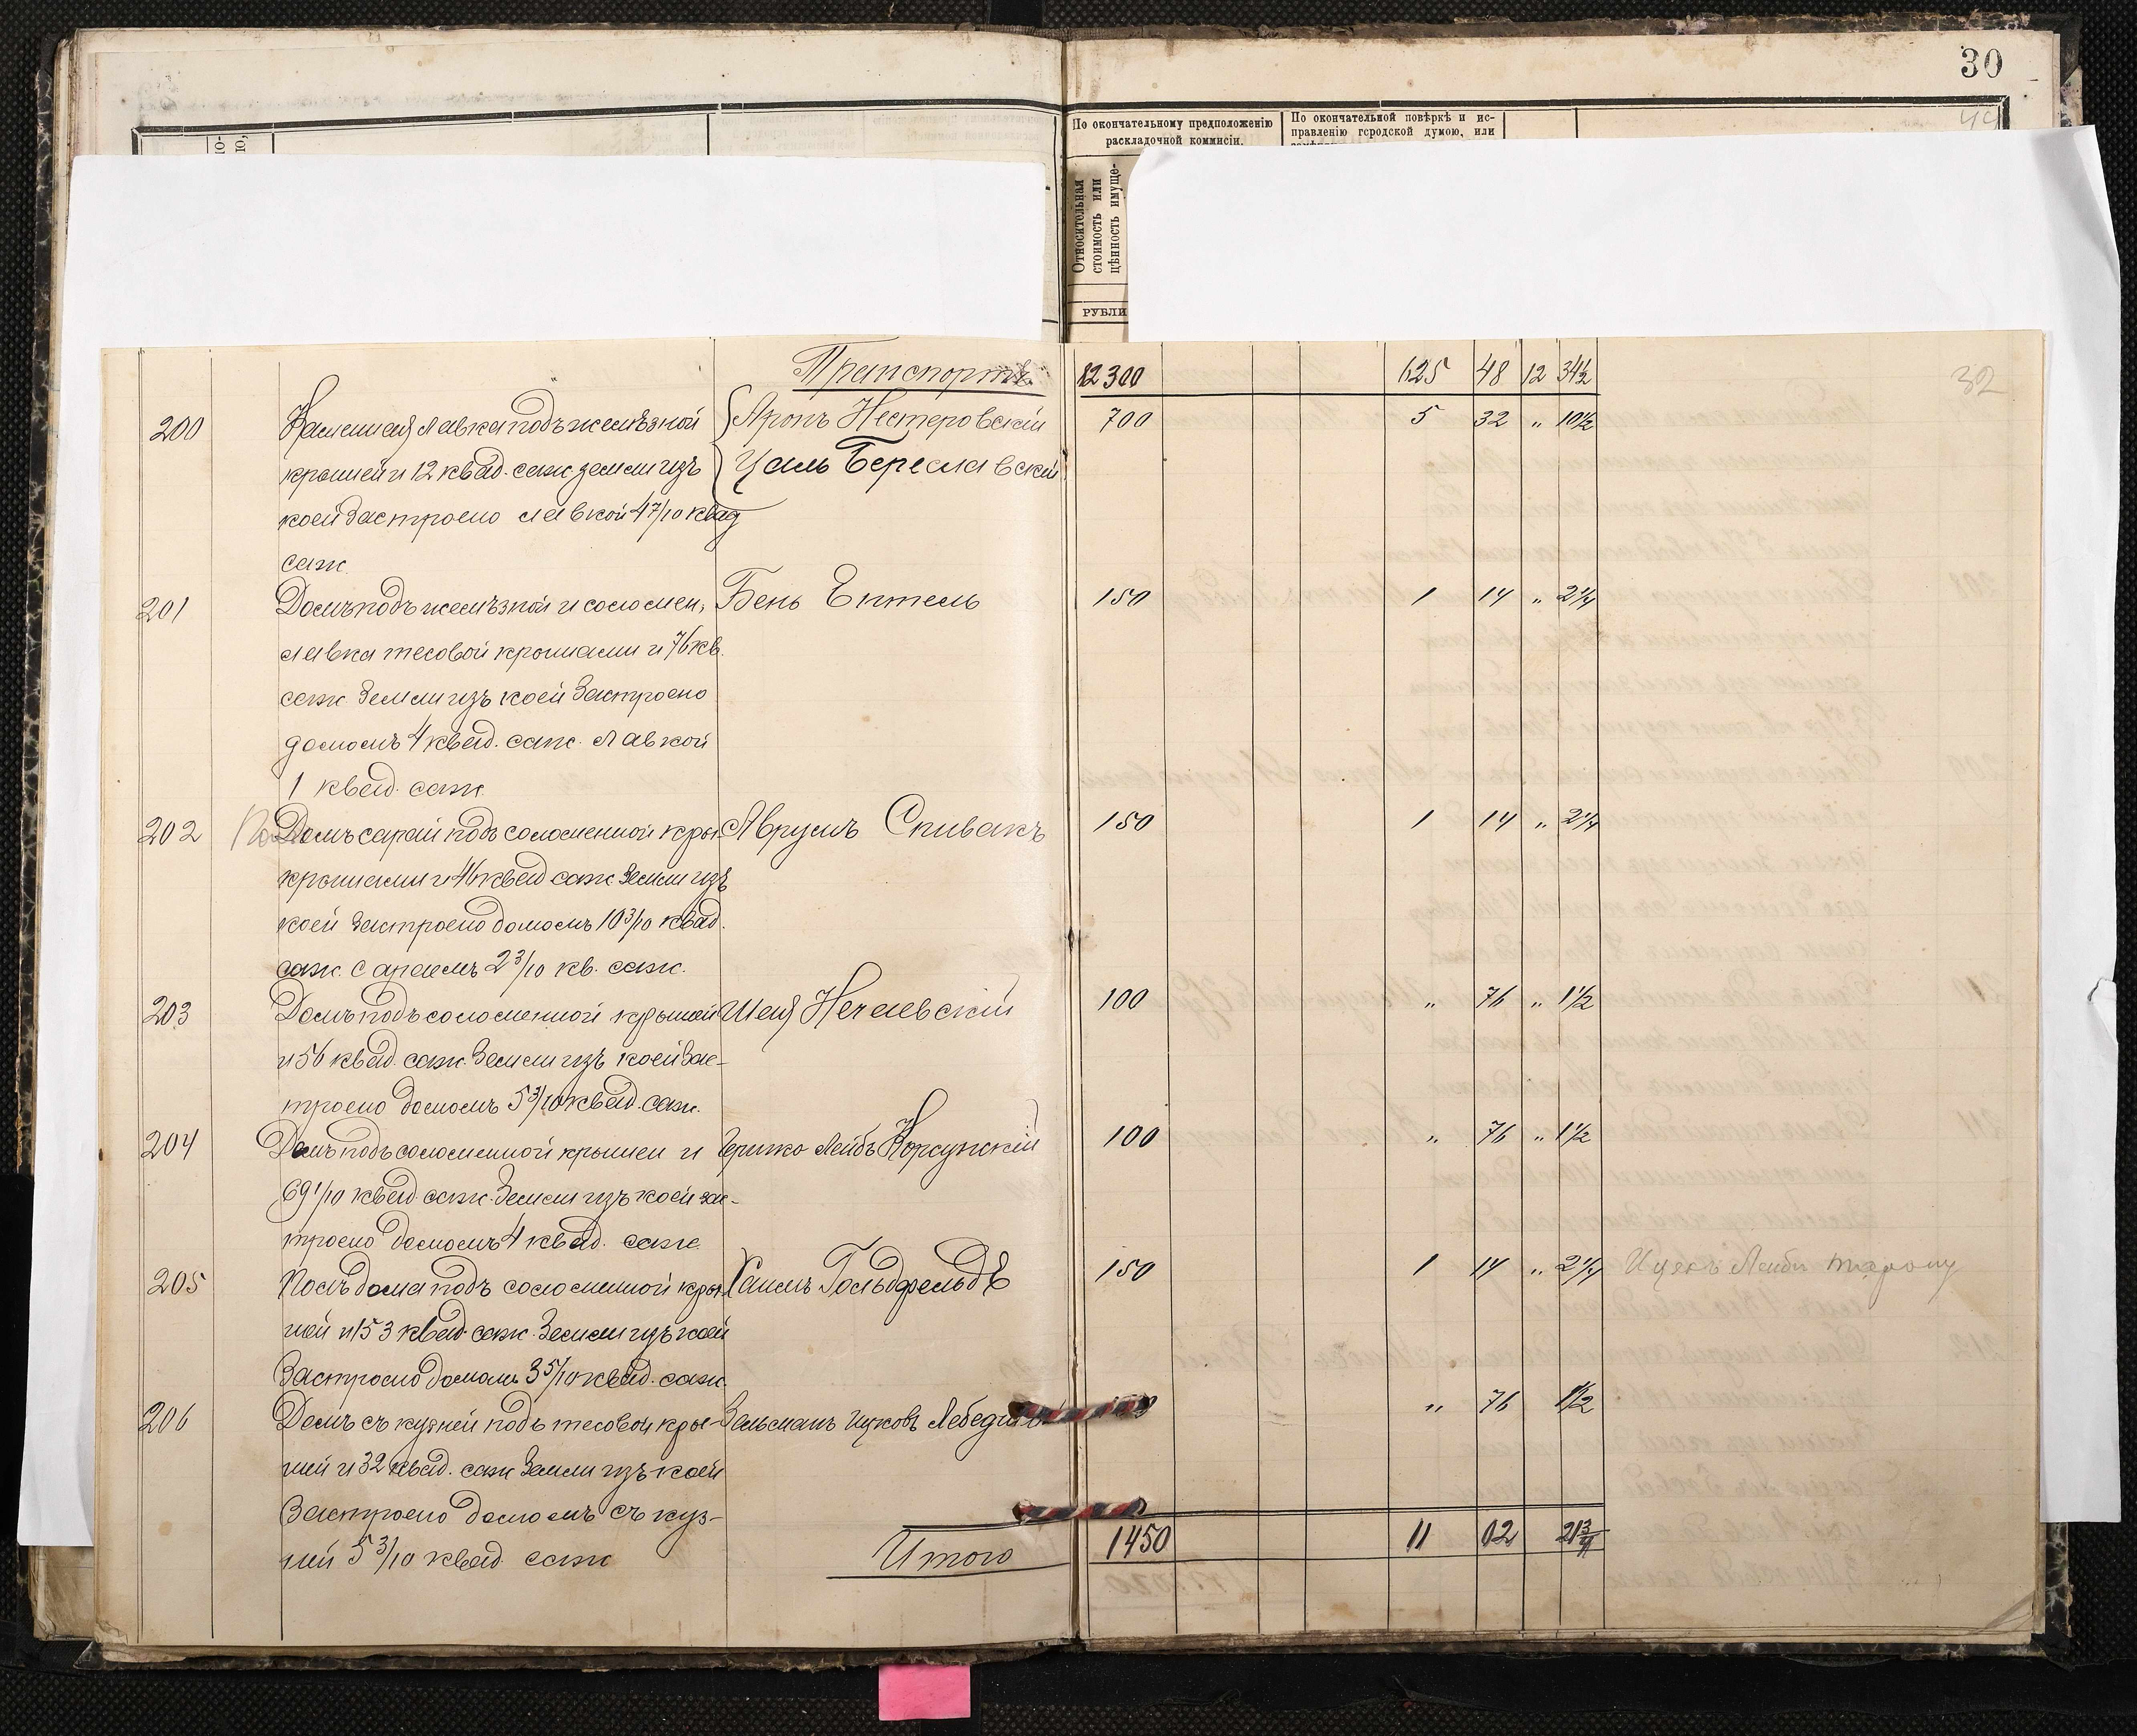 30
44
По окончательному предположенію
раскладочной коммисіи.
По окончательной повѣркѣ и ис-
правленію городской думою, или
Относительная
стоимость или
цѣнность имуще-
РУБЛИ
32
Транспортъ 82300 625 48 12 34½
200 Каменная лавка подъ желѣзной Аронъ Нестеровскій 700 5 32 „ 10½
крышей и 12 квад. саж. земли изъ Цаль Береславскій
коей застроено лавкой 4 7/10 квад
саж.
201 Домъ подъ желѣзной и соломен, Бень Ентель 150 1 14 „ 2¼
лавка тесовой крышами и 76 кв.
саж. Земли изъ коей Застроено
домомъ 4 квад. саж. Лавкой
1 квад. саж.
202 Домъ сарай подъ соломенной кры Аврумъ Спивакъ 150 1 14 „ 2¼
крышами и 46 квад саж Земли изъ
коей Застроено домомъ 10 3/10 квад.
саж. Сараемъ 2 3/10 кв. саж.
203 Домъ подъ соломенной крышей Шая Нечаевскій 100 „ 76 „ 1½
и 56 квад. саж. Земли изъ коей Зас-
троено домомъ 5 3/10 квад. саж.
204 Домъ подъ соломенной крышей и Гершко Лейбъ Корсунскій 100 „ 76 „ 1½
69 1/10 квад. саж. Земли изъ коей зас-
троено домомъ 4 квад. саж.
205 Полъ дома подъ соломенной кры Хаимъ Гольдфельдъ 150 1 14 „ 2¼ Ицекъ Лейбъ
шей и 153 квад. саж. Земли изъ коей
Застроено домомъ 3 5/10 квад. саж.
206 Домъ съ кузней подъ тесовой кры- Зельманъ Ицковъ „ 76 1½
шей и 32 квад. саж Земли изъ коей
Застроено домомъ съ куз-
ней 5 3/10 квад. саж
Итого 1450 11 02 21¾